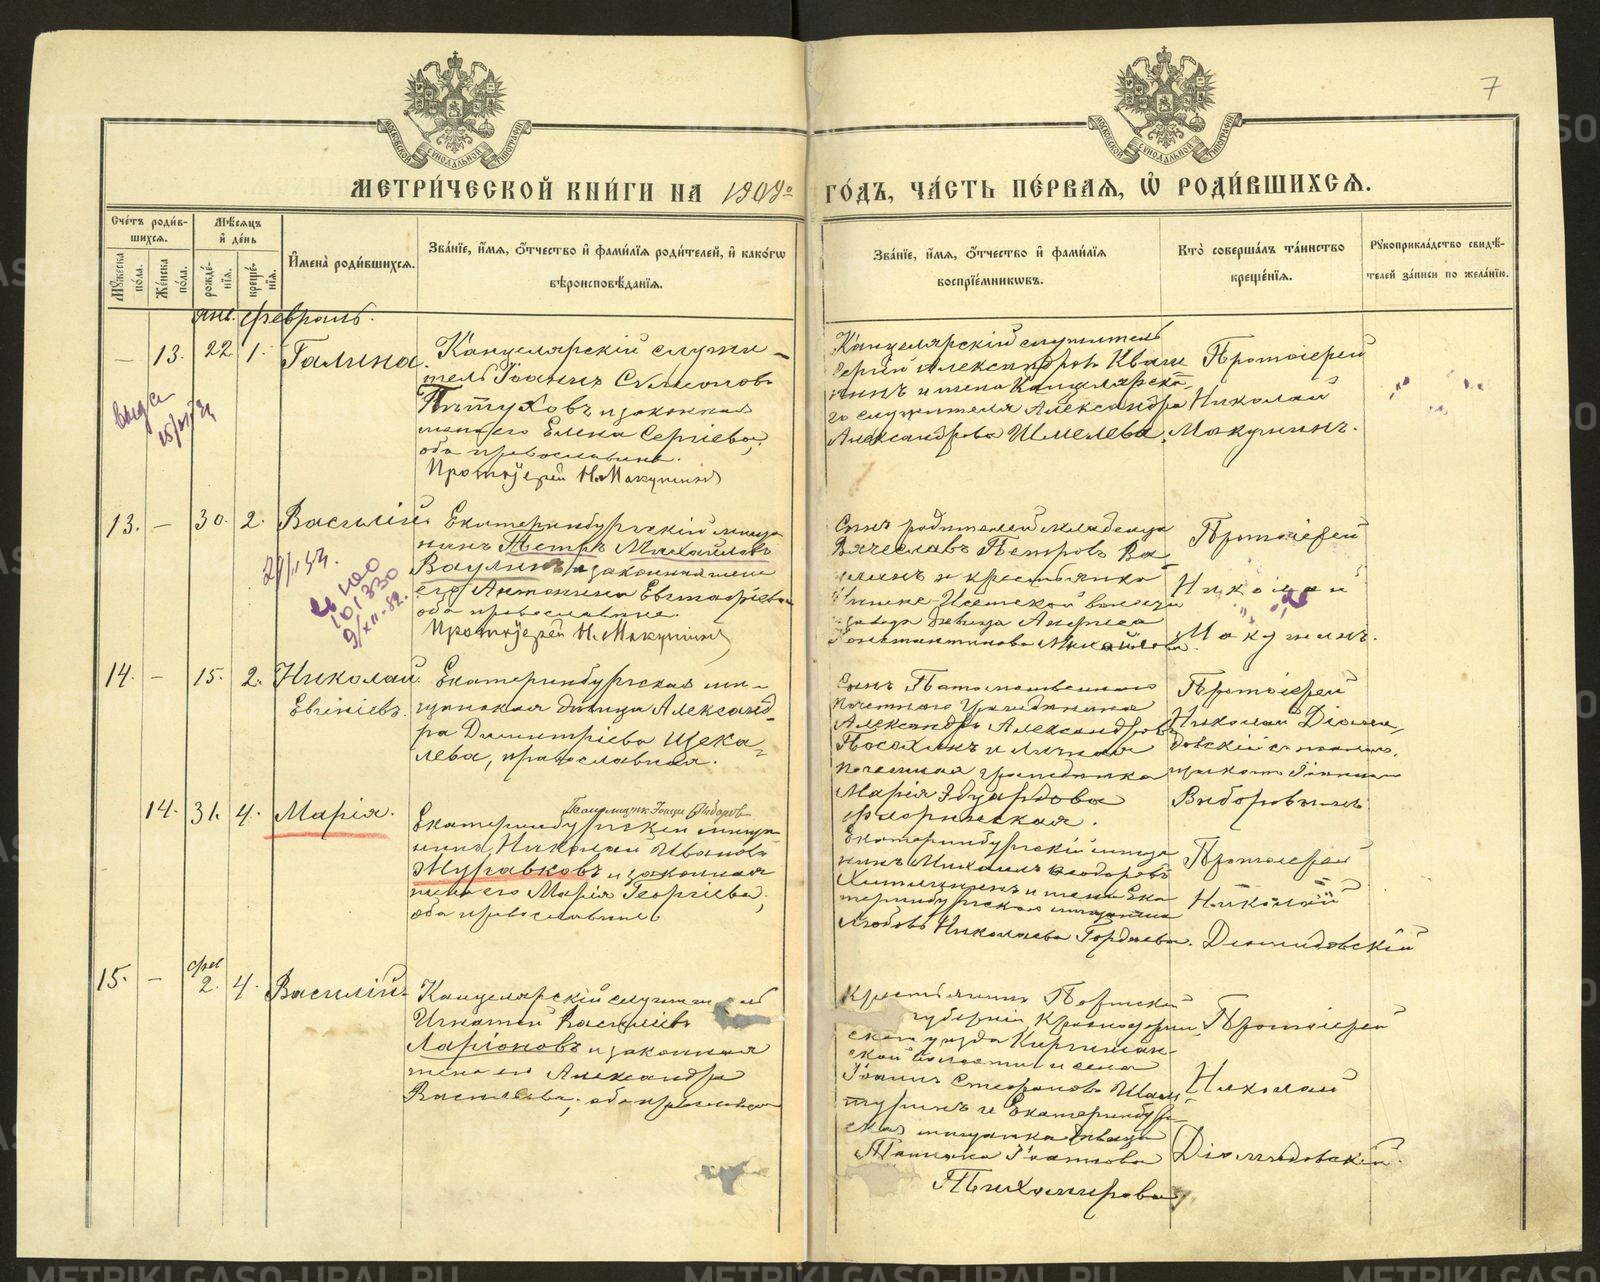 7
МЕТРИ́ЧЕСКОЙ КНИ́ГИ НА 1908го ГО́ДЪ, ЧА́СТЬ ПЕ́РВАЯ, Ѿ РОДИ́ВШИХСЯ.
МОСКОВСКОЙ СУНОДАЛЬНОЙ ТИПОГРАФІИ
МОСКОВСКОЙ СУНОДАЛЬНОЙ ТИПОГРАФІИ
Сче́тъ роди́вшихся.
Му́жеска по́ла.
Же́нска по́ла.
Мѣ́сяцъ и҆ де́нь
рожде́нїя.
креще́нїя.
И҆мена̀ роди́вшихся.
Зва́нїе, и҆́мя, ѻ҆́тчество и҆ фами́лїя роди́телей, и҆ како́гѡ вѣроисповѣ́данїя.
Зва́нїе, и҆́мя, ѻ҆́тчество и҆ фами́лїя воспрїе́мникѡвъ.
Кто̀ соверша́лъ та́инство креще́нїя.
Рꙋкоприкла́дство свидѣ́телей за́писи по жела́нїю.
янв. февраль.
— 13. 22 1. Галина.
Канцелярскій служи-
тель Іоаннъ Симеоновъ
Пѣтуховъ и законная
жена его Елена Сергіева,
оба православные.
Протоіерей Н. Макушинъ
Канцелярскій служитель
Сергій Александровъ Кваш
нинъ и жена Канцелярска
го служителя Александра
Александрова Шмелева.
Протоіерей
Николай
Макушинъ.
13. — 30. 2. Василій.
Екатеринбургскій мѣща
нинъ Петръ Михайловъ
Ваулинъ и законная жена
его Антонина Евграфова
оба православные.
Протоіерей Н. Макушинъ
9/XII-82.
Сынъ родителей младенца
Вячеславъ Петровъ Ва
улинъ и крестьянка
Нижне-Исетской волости
завода девица
Константинова
Протоіерей
Николай
Макушинъ.
14. — 15. 2. Николай
Евгеніевъ.
Екатеринбургская мѣ-
щанская дѣвица Александ-
ра Димитріева Щека-
лева, православная.
Сынъ Потомственнаго
почетнаго Гражданина
Александръ Александровъ
Посохинъ и Личная
почетная гражданка
Марія Эдуардова
Флоринская.
Протоіерей
Николай Діоми-
довскій съ
щикомъ Іоанномъ
Виборовымъ.
14. 31. 4. Марія.
Екатеринбургскій мѣща
нинъ Николай Ивановъ
Журавковъ и законная
жена его Марія Георгіева,
оба православные
Екатеринбургскій мѣща
нинъ Михаилъ Ѳеодоровъ
и жена Ека
теринбургскаго мѣщанина
Любовь Николаева Гордѣева.
Протоіерей
Николай
Діомидовскій
15. — фев 2. 4. Василій.
Канцелярскій служитель
Игнатій Василіевъ
Ларіоновъ и законная
жена его Александра
Васильева, оба православные
Крестьянинъ Пермской
губерніи, Красноуфим
скаго уѣзда
ской волости и села
Іоаннъ Стефановъ Шам
туринъ и Екатеринбург-
ская мѣщанка дѣвица
Іоаннова
Тихомирова
Протоіерей
Николай
Діомидовскій.
METRIKI.GASO-URAL.RU